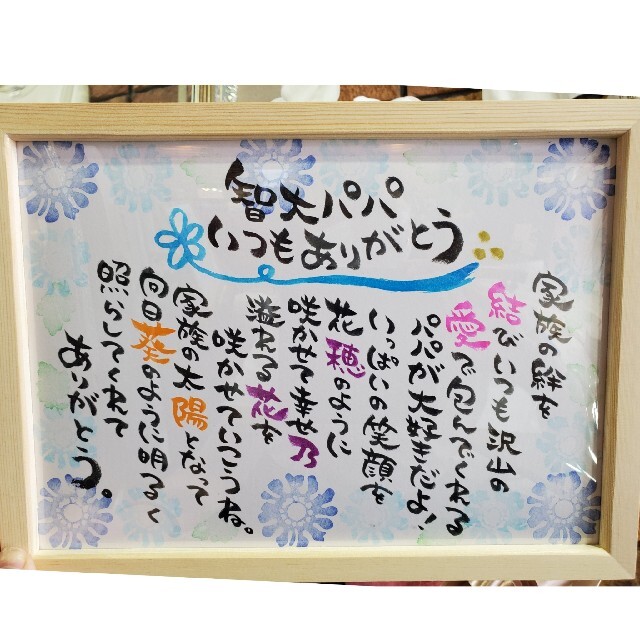 智大パパ
いつもありがとう
家族の絆を
結びいつも沢山の
愛で包んでくれる
パパが大好きだよ!
いっぱいの笑顔を
花穂のように
咲かせて幸せ乃
溢れる花を
咲かせていこうね。
家族の太陽となって
向日葵のように明るく
照らしてくれて
ありがとう。